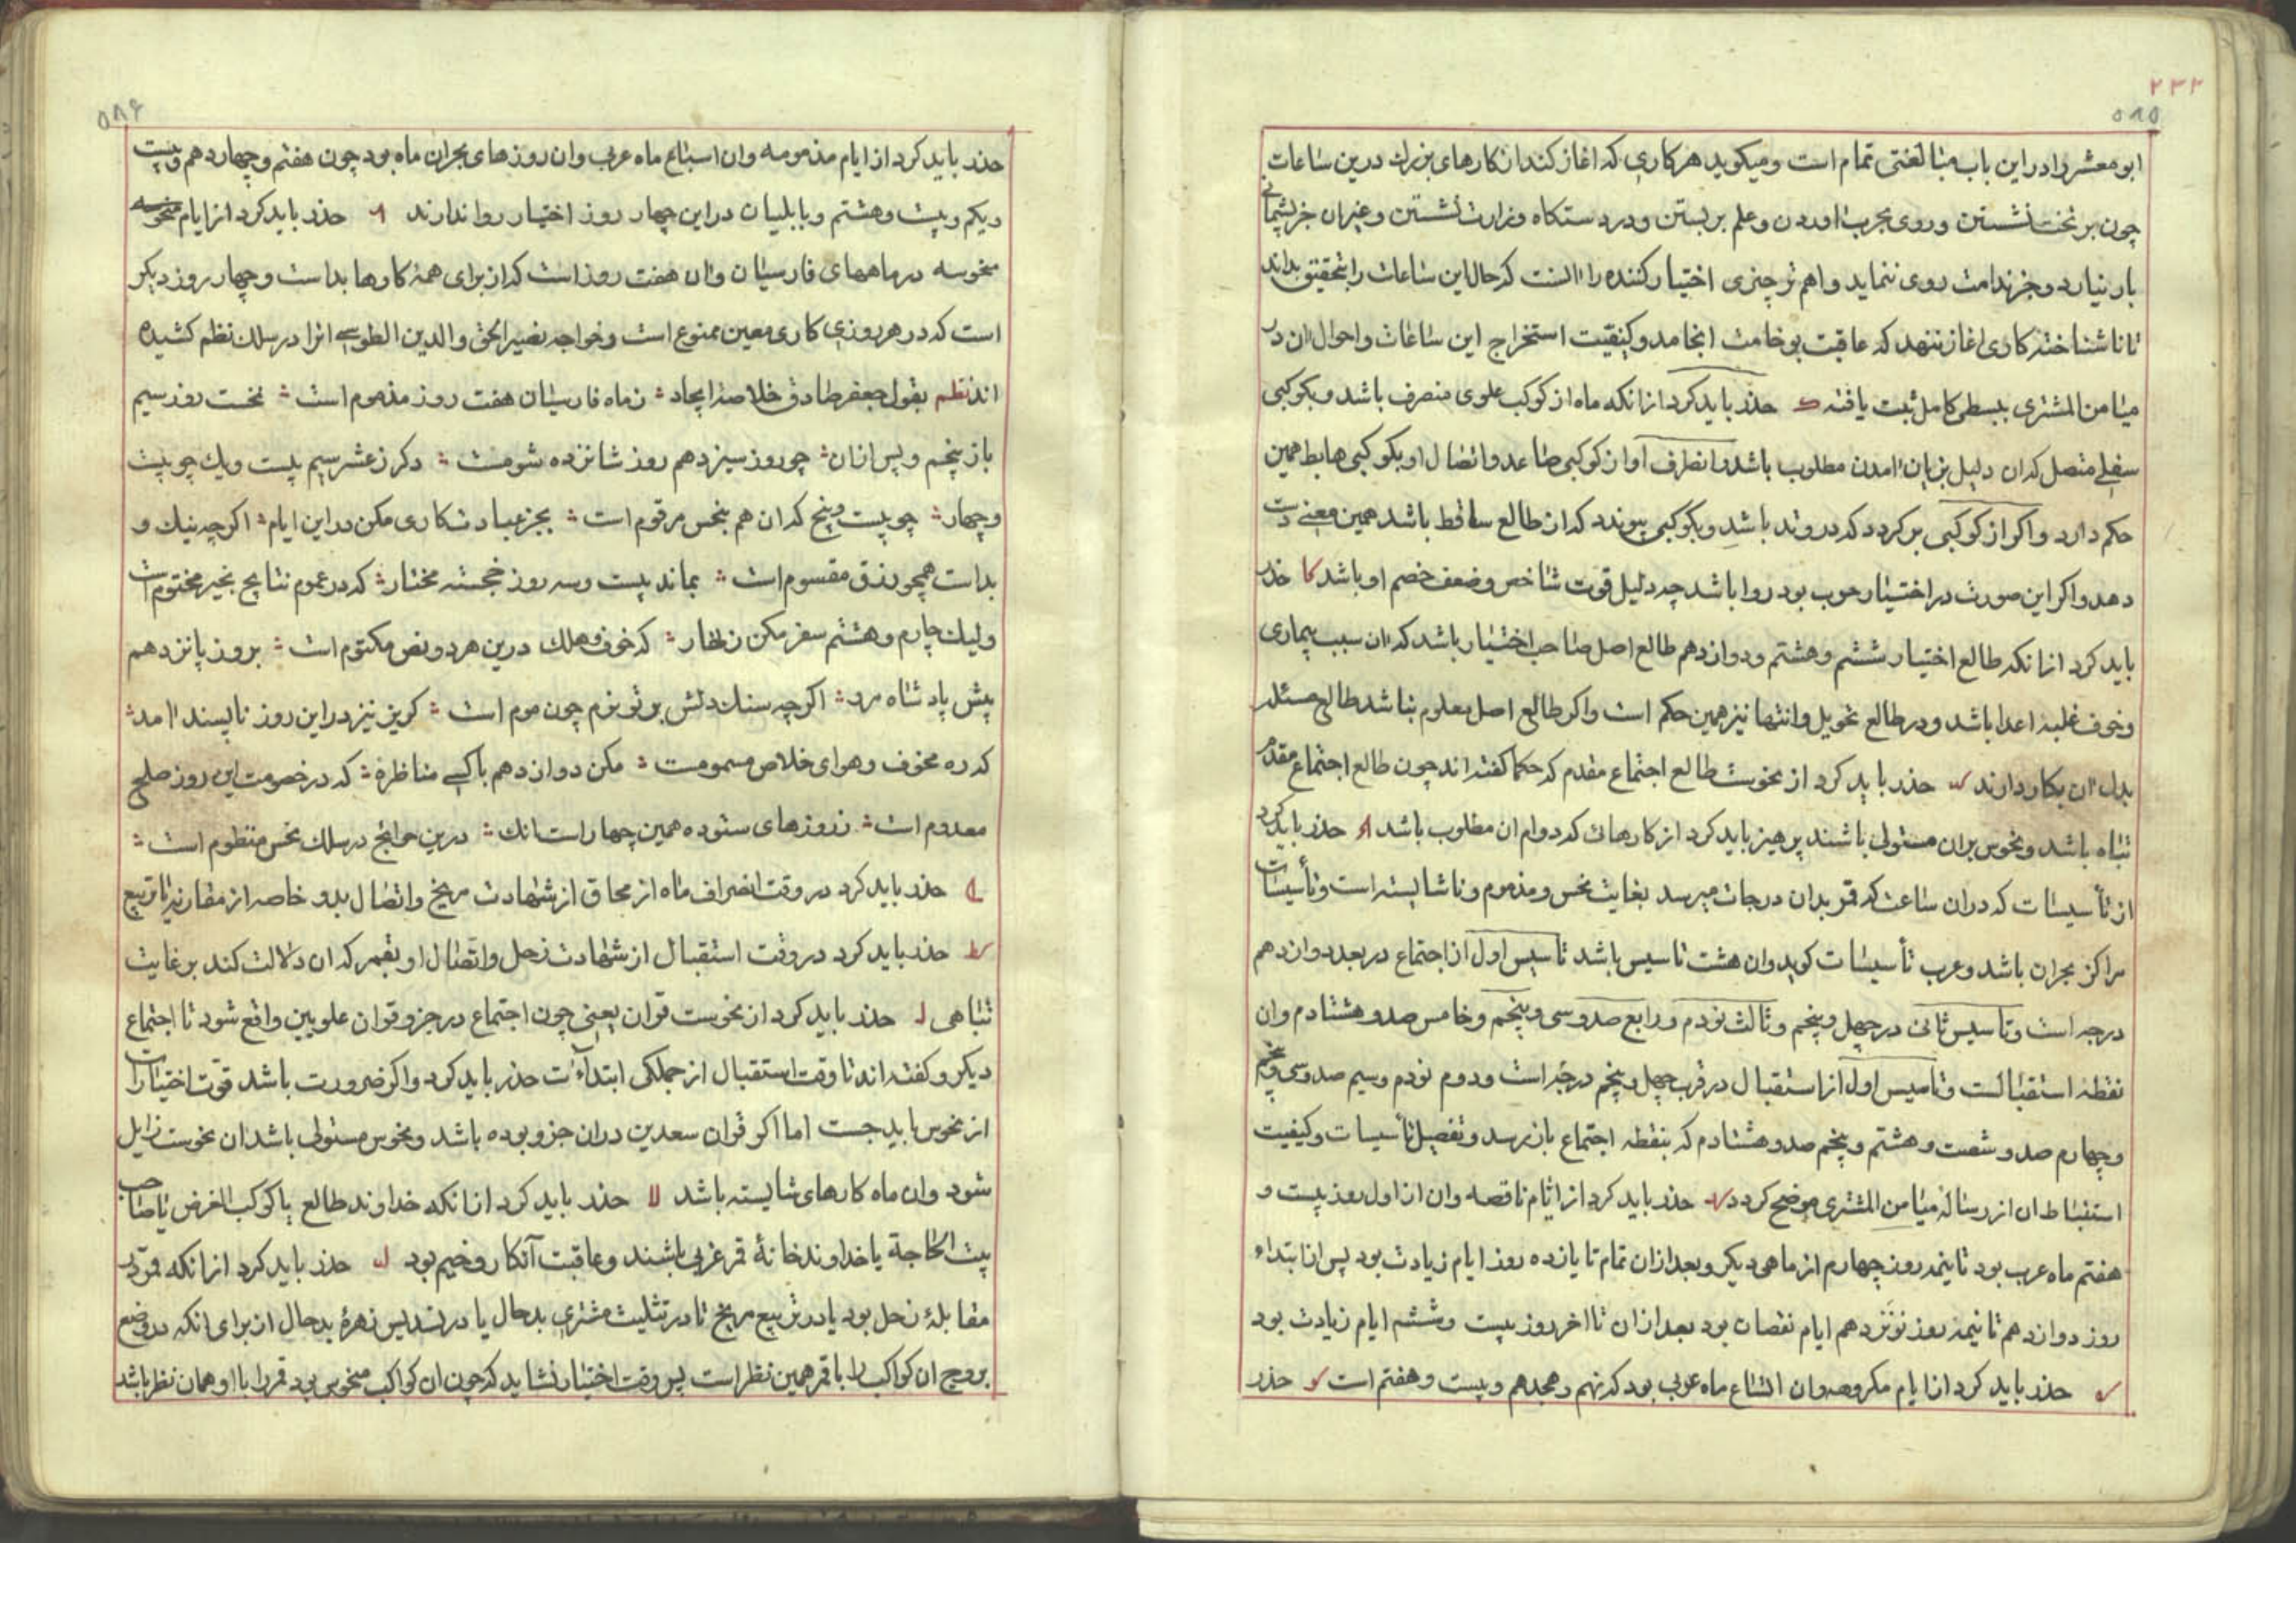 ۲۳۲
۵۸۵
ابو معشر را در این باب مبالغتی تمام است و میکوید هر کاری که اغاز کنند از کارهای بزرك درین ساعات
چون بر تخت نشستن و روی بحرب اوردن و علم بر بستن و در دستکاه وزارت نشستن و غیر ان جز پشیمانی
بار نیارد و جز ندامت روی ننماید و اهم تر چیزی اختیار کننده را انست که حال این ساعات را بتحقیق بداند
تا ناشناخته کاری اغاز ننهد که عاقبت بوخامت انجامد و کیفیت استخراج این ساعات و احوال ان در
میامن المشتری ببسطی کامل ثبت یافته ك حذر باید کرد از انکه ماه از کوکب علوی منصرف باشد و بکوکبی
سفلی متصل که ان دلیل بزیان امدن مطلوب باشد و انصراف او از کوکبی صاعد و اتصال او بکوکبی هابط همین
حکم دارد و اکر از کوکبی بر کردد که در وتد باشد و بکوکبی پیوندد که از طالع ساقط باشد همین معنی دست
دهد و اکر این صورت در اختیار حرب بود روا باشد چه دلیل قوت شاخص و ضعف خصم او باشد کا حذر
باید کرد از انکه طالع اختیار ششم و هشتم و دوازدهم طالع اصل صاحب اختیار باشد که ان سبب بیماری
و خوف غلبه اعدا باشد و در طالع تحویل و انتها نیز همین حکم است و اکر طالع اصل معلوم نباشد طالع مسئله
بدل ان بکار دارند کب حذر باید کرد از نحوست طالع اجتماع مقدم که حکما کفته اند چون طالع اجتماع مقدم
تباه باشد و نحوس بران مستولی باشند پرهیز باید کرد از کارهائ که دوام ان مطلوب باشد حذر باید کرد
از تأسیسات که دران ساعت که قمر بدان درجات میرسد بغایت نحس و مذموم و ناشایسته است و تأسیسات
مراکز بحران باشد و عرب تأسیسات کوید و ان هشت تاسیس باشد تاسیس اول از اجتماع در بعد دوازدهم
درجه است و تاسیس ثانی در چهل و پنجم و ثالث نودم و رابع صد و سی و پنجم و خامس صد و هشتادم و ان
نقطه استقبالست و تاسیس اول از استقبال در قرب چهل و پنجم درجه است و دوم نودم و سیم صد و سی و پنجم
و چهارم صد و شصت و هشتم و پنجم صد و هشتادم که بنقطه اجتماع باز رسد و تفصیل تأسیسات و کیفیت
استنباط ان از رسالۀ میامن المشتری موضح کردد کد حذر باید کرد از ایام ناقصه و ان از اول روز بیست و
هفتم ماه عرب بود تا نیمه روز چهارم از ماهی دیکر و بعد ازان تمام تا یازده روز ایام زیادت بود پس از ابتداء
روز دوازدهم تا نیمه روز نوزدهم ایام نقصان بود بعد ازان تا اخر روز بیست و ششم ایام زیادت بود
که حذر باید کرد از ایام مکروهه و ان اتساع ماه عربی بود که نهم و هجدهم و بیست و هفتم است کو حذر
۵۸۶
حذر باید کرد از ایام مذمومه و ان اسباع ماه عربی و ان روزهای بحران ماه بود چون هفتم و چهاردهم و بیست
و یکم و بیست و هشتم و بابلیان در این چهار روز اختیار روا ندارند حذر باید کرد از ایام منحوسه
منحوسه در ماههای فارسیان و ان هفت روز است که از برای همۀ کارها بد است و چهار روز دیکر
است که در هر روزی کاری معین ممنوع است و خواجه نصیر الحق والدین الطوسی انرا در سلك نظم کشیده
اند نظم بقول جعفر صادق خلاصۀ ایجاد ز ماه فارسیان هفت روز مذموم است نخست روز سیم
باز پنجم و پس ازان چو روز سیزدهم روز شانزده شومست دکر ز عشر سیم بیست و یك چو بیست
و چهار چو بیست و پنج که ان هم بنحس مرقوم است بجز عبادت کاری مکن در این ایام اکر چه نیك و
بد است همچو رزق مقسوم است بماند بیست و سه روز خجسته مختار که در عموم نتایج بخیر مختوم است
ولیك چارم و هشتم سفر مکن زنهار که خوف و هلك درین هر دو نص مکتوم است بروز پانزدهم
پیش پادشاه مرد اکر چه سنك دلش بر تو نرم چون موم است کریز نیز در این روز ناپسند امد
که ره مخوف و هوای خلاص مسمومست مکن دوازدهم باکسی مناظره که در خصومت این روز صلح
معدوم است ز روزهای ستوده همین چهار است انك درین حوائج در سلك نحس منظوم است
حذر باید کرد در وقت انصراف ماه از محاق از شهادت مریخ و اتصال بدو خاصه از مقارنه یا تربیع
کط حذر باید کرد در وقت استقبال از شهادت زحل و اتصال او بقمر که ان دلالت کند بر غایت
تباهی ل حذر باید کرد از نحوست قران یعنی چون اجتماع در جزو قران علویین واقع شود تا اجتماع
دیکر و کفته اند تا وقت استقبال از جملکی ابتداآت حذر باید کرد و اکر ضرورت باشد قوت اختیارات
از نحوس باید جست اما اکر قران سعدین دران جزو بوده باشد و نحوس مستولی باشد ان نحوست زایل
شود و ان ماه کارهای شایسته باشد لا حذر باید کرد از انکه خداوند طالع یا کوکب الغرض یا صاحب
بیت الحاجة یا خداوند خانۀ قمر غربی باشند و عاقبت آنکار وخیم بود لب حذر باید کرد از انکه قمر در
مقابلۀ زحل بود یا در تربیع مریخ تا در تثلیث مشتری بدحال یا در تسدیس زهرۀ بدحال از برای انکه در وضع
بروج ان کواکب را با قمر همین نظر است پس وقت اختیار نشاید که چون ان کواکب منحوس بود قمر را با او همان نظر باشد